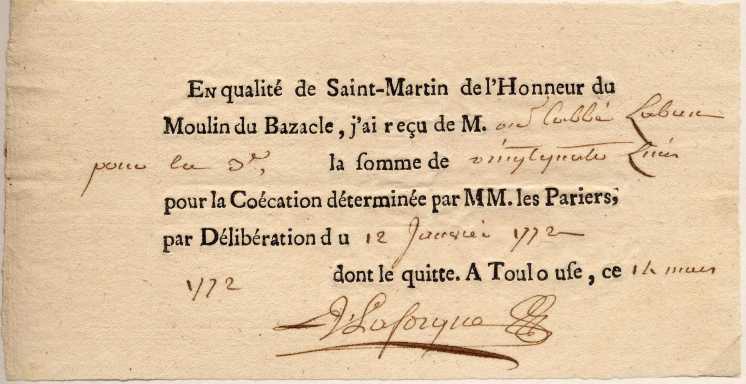 EN qualité de Saint-Martin de l'Honneur du
Moulin du Bazacle, j'ai reçu de M. l'abbé
pour la la ſomme de vingtquatre livres
pour la Coécation déterminée par MM. les Pariers,
par Délibération du 12 Janvier 1772
1772 dont le quitte. A Toulouſe, ce 14 mars